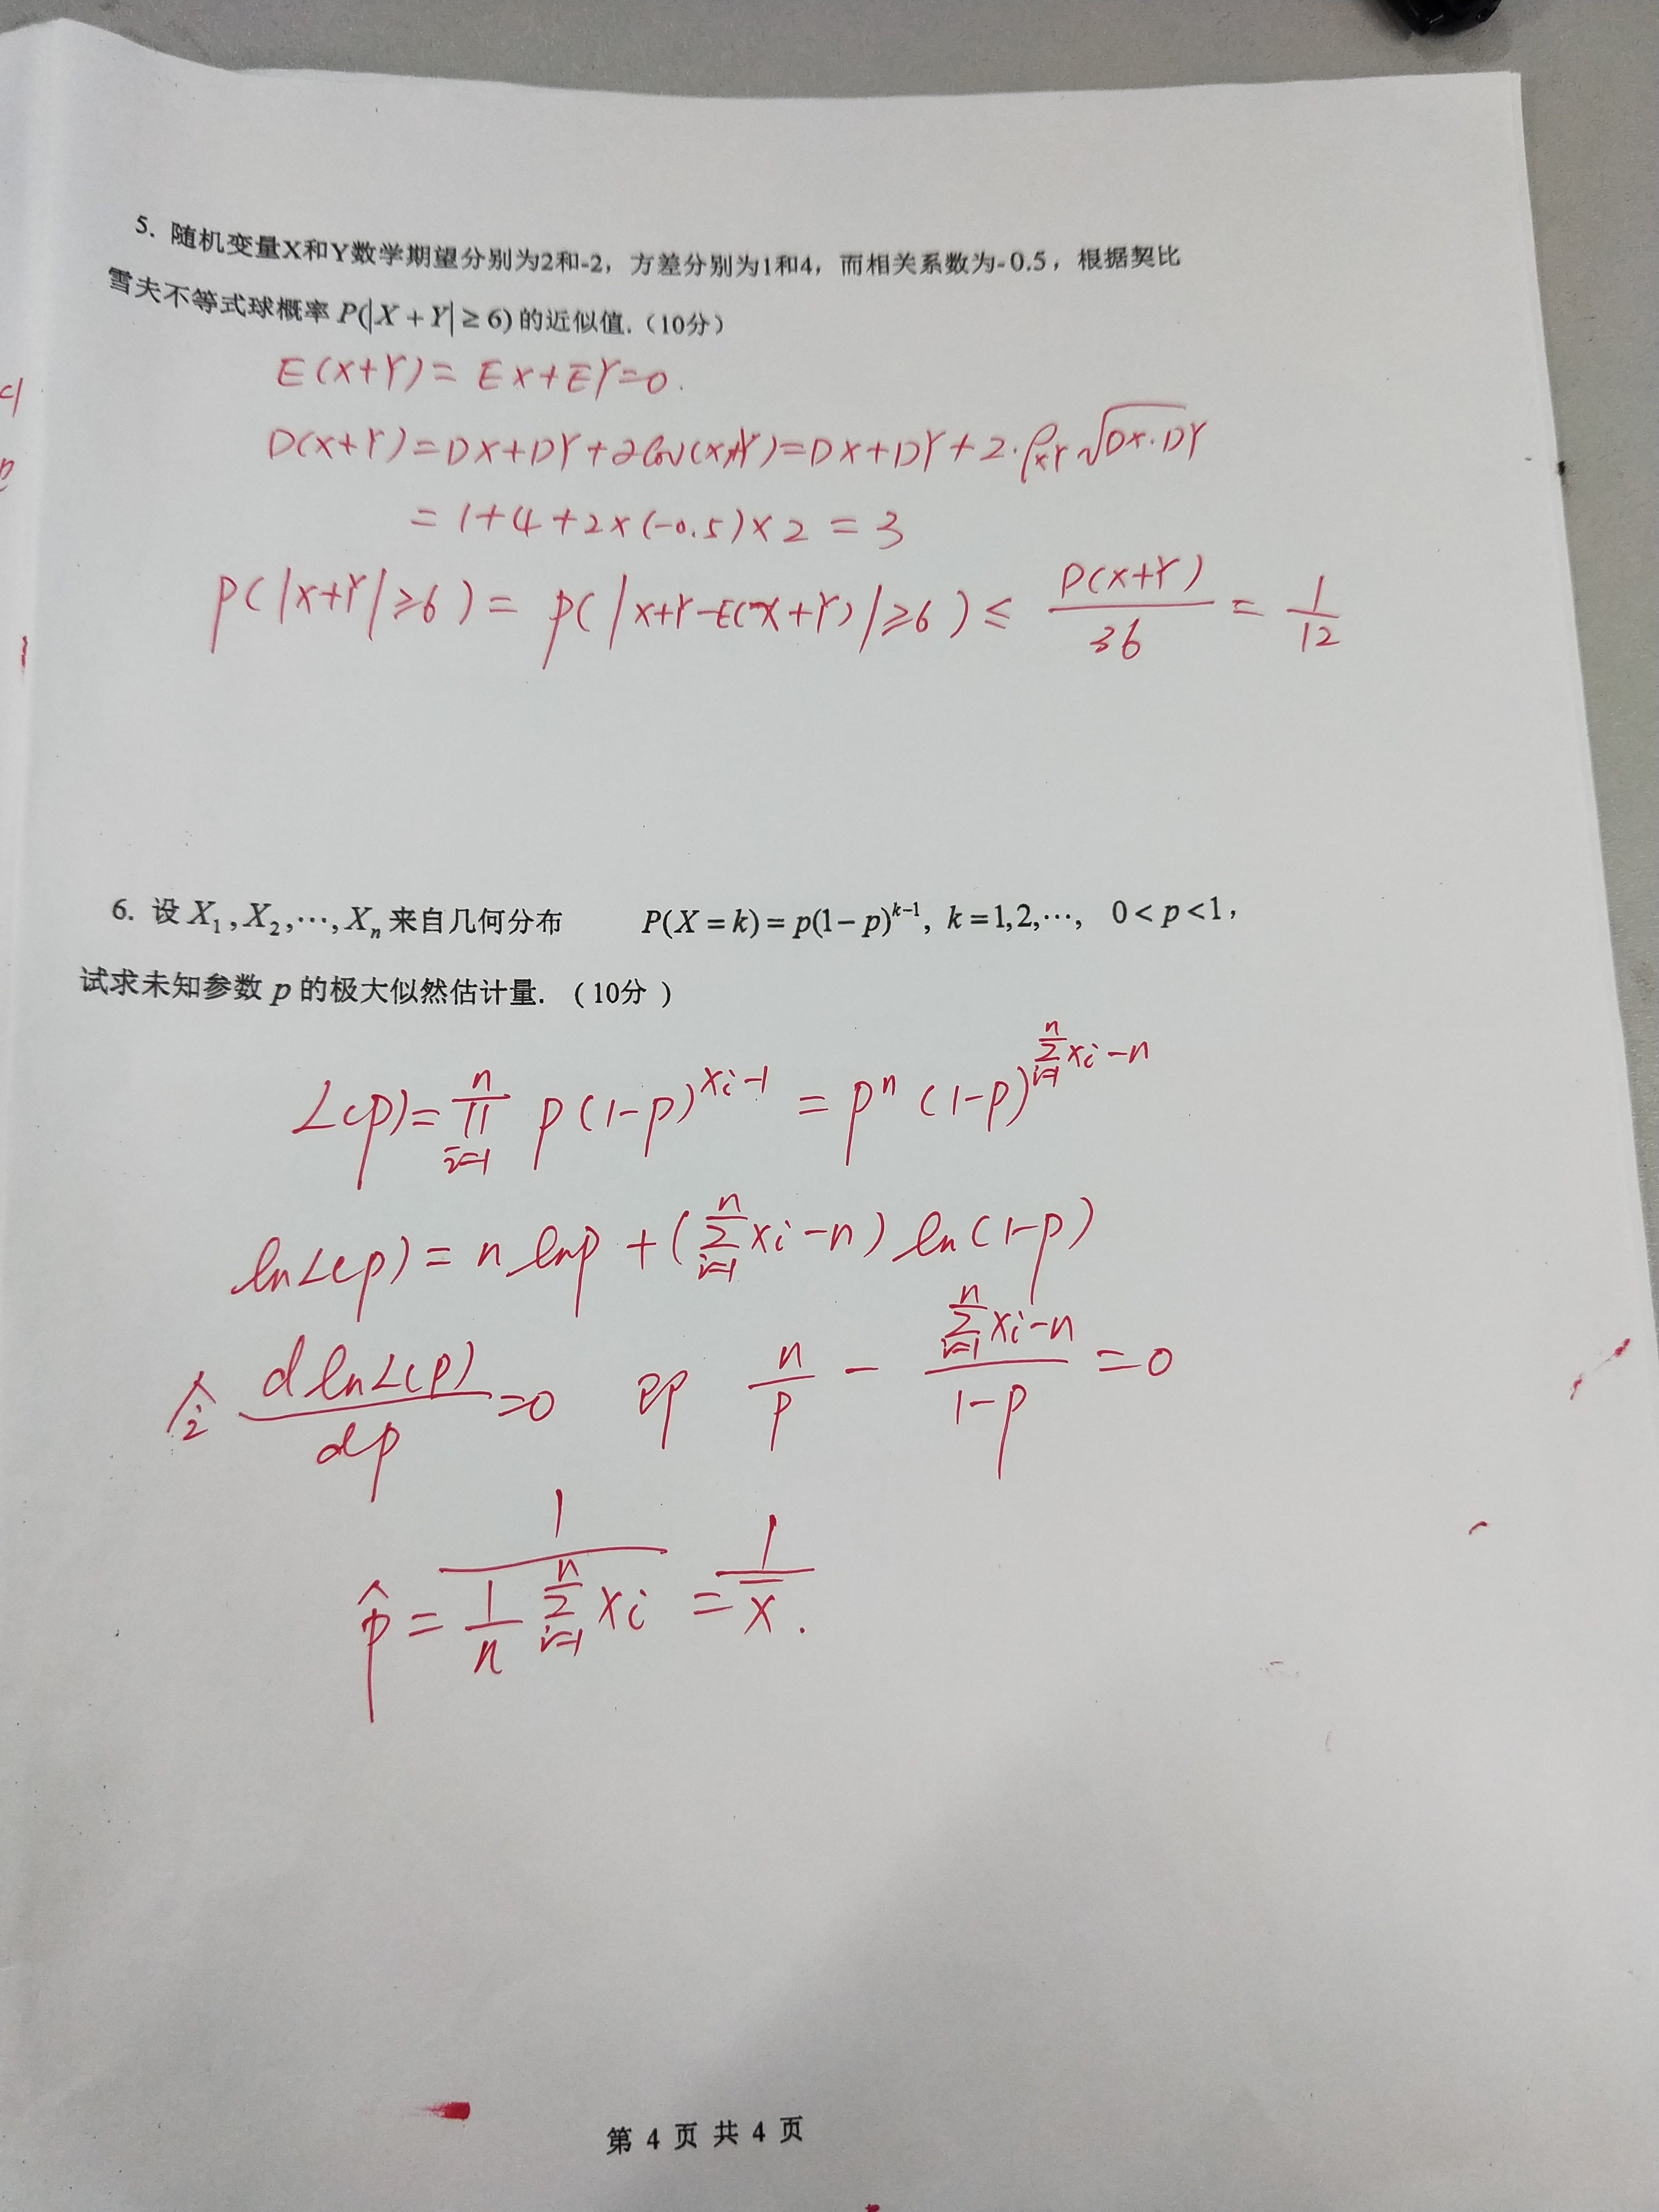 5. 随机变量X和Y数学期望分别为2和-2，方差分别为1和4，而相关系数为-0.5，根据契比
雪夫不等式球概率 P(|X+Y|≥6) 的近似值.（10分）
E(X+Y)= EX+EY=0.
D(X+Y)=DX+DY+2Cov(X,Y)=DX+DY+2·ρ_{XY}√(DX·DY)
= 1+4+2×(-0.5)×2 = 3
P(|X+Y|≥6)= P(|X+Y-E(X+Y)|≥6)≤ D(X+Y)/36 = 1/12
6. 设 X₁,X₂,⋯,Xₙ 来自几何分布 P(X=k)=p(1-p)^{k-1}, k=1,2,⋯, 0<p<1，
试求未知参数 p 的极大似然估计量. (10分)
L(p)=∏_{i=1}^{n} p(1-p)^{xi-1} = pⁿ(1-p)^{∑_{i=1}^{n}xi-n}
lnL(p)= n lnp +(∑_{i=1}^{n}xi-n) ln(1-p)
令 dlnL(p)/dp=0 即 n/p - (∑_{i=1}^{n}xi-n)/(1-p) =0
p̂ = 1/(1/n ∑_{i=1}^{n} xi) = 1/x̄.
第 4 页 共 4 页